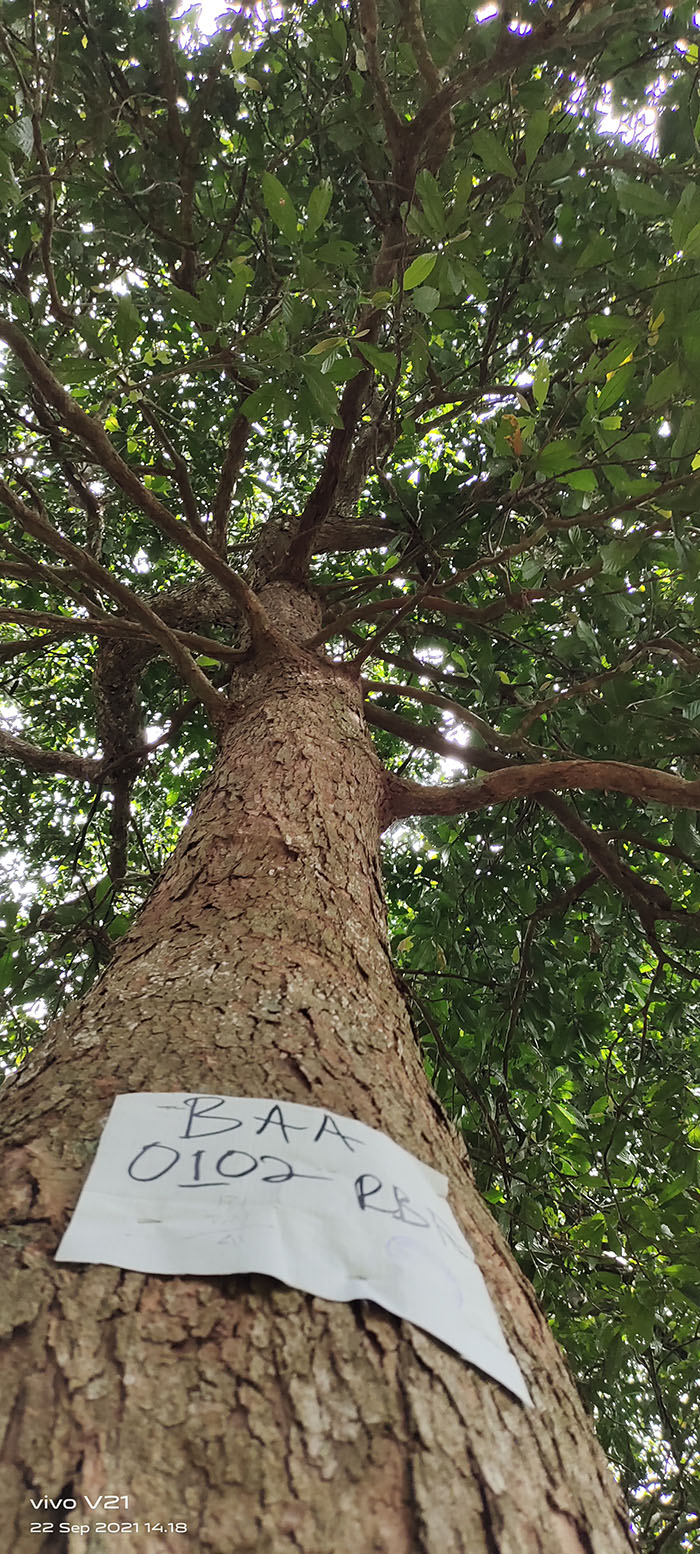 BAA
0102
vivo V21
22 Sep 2021 14.18